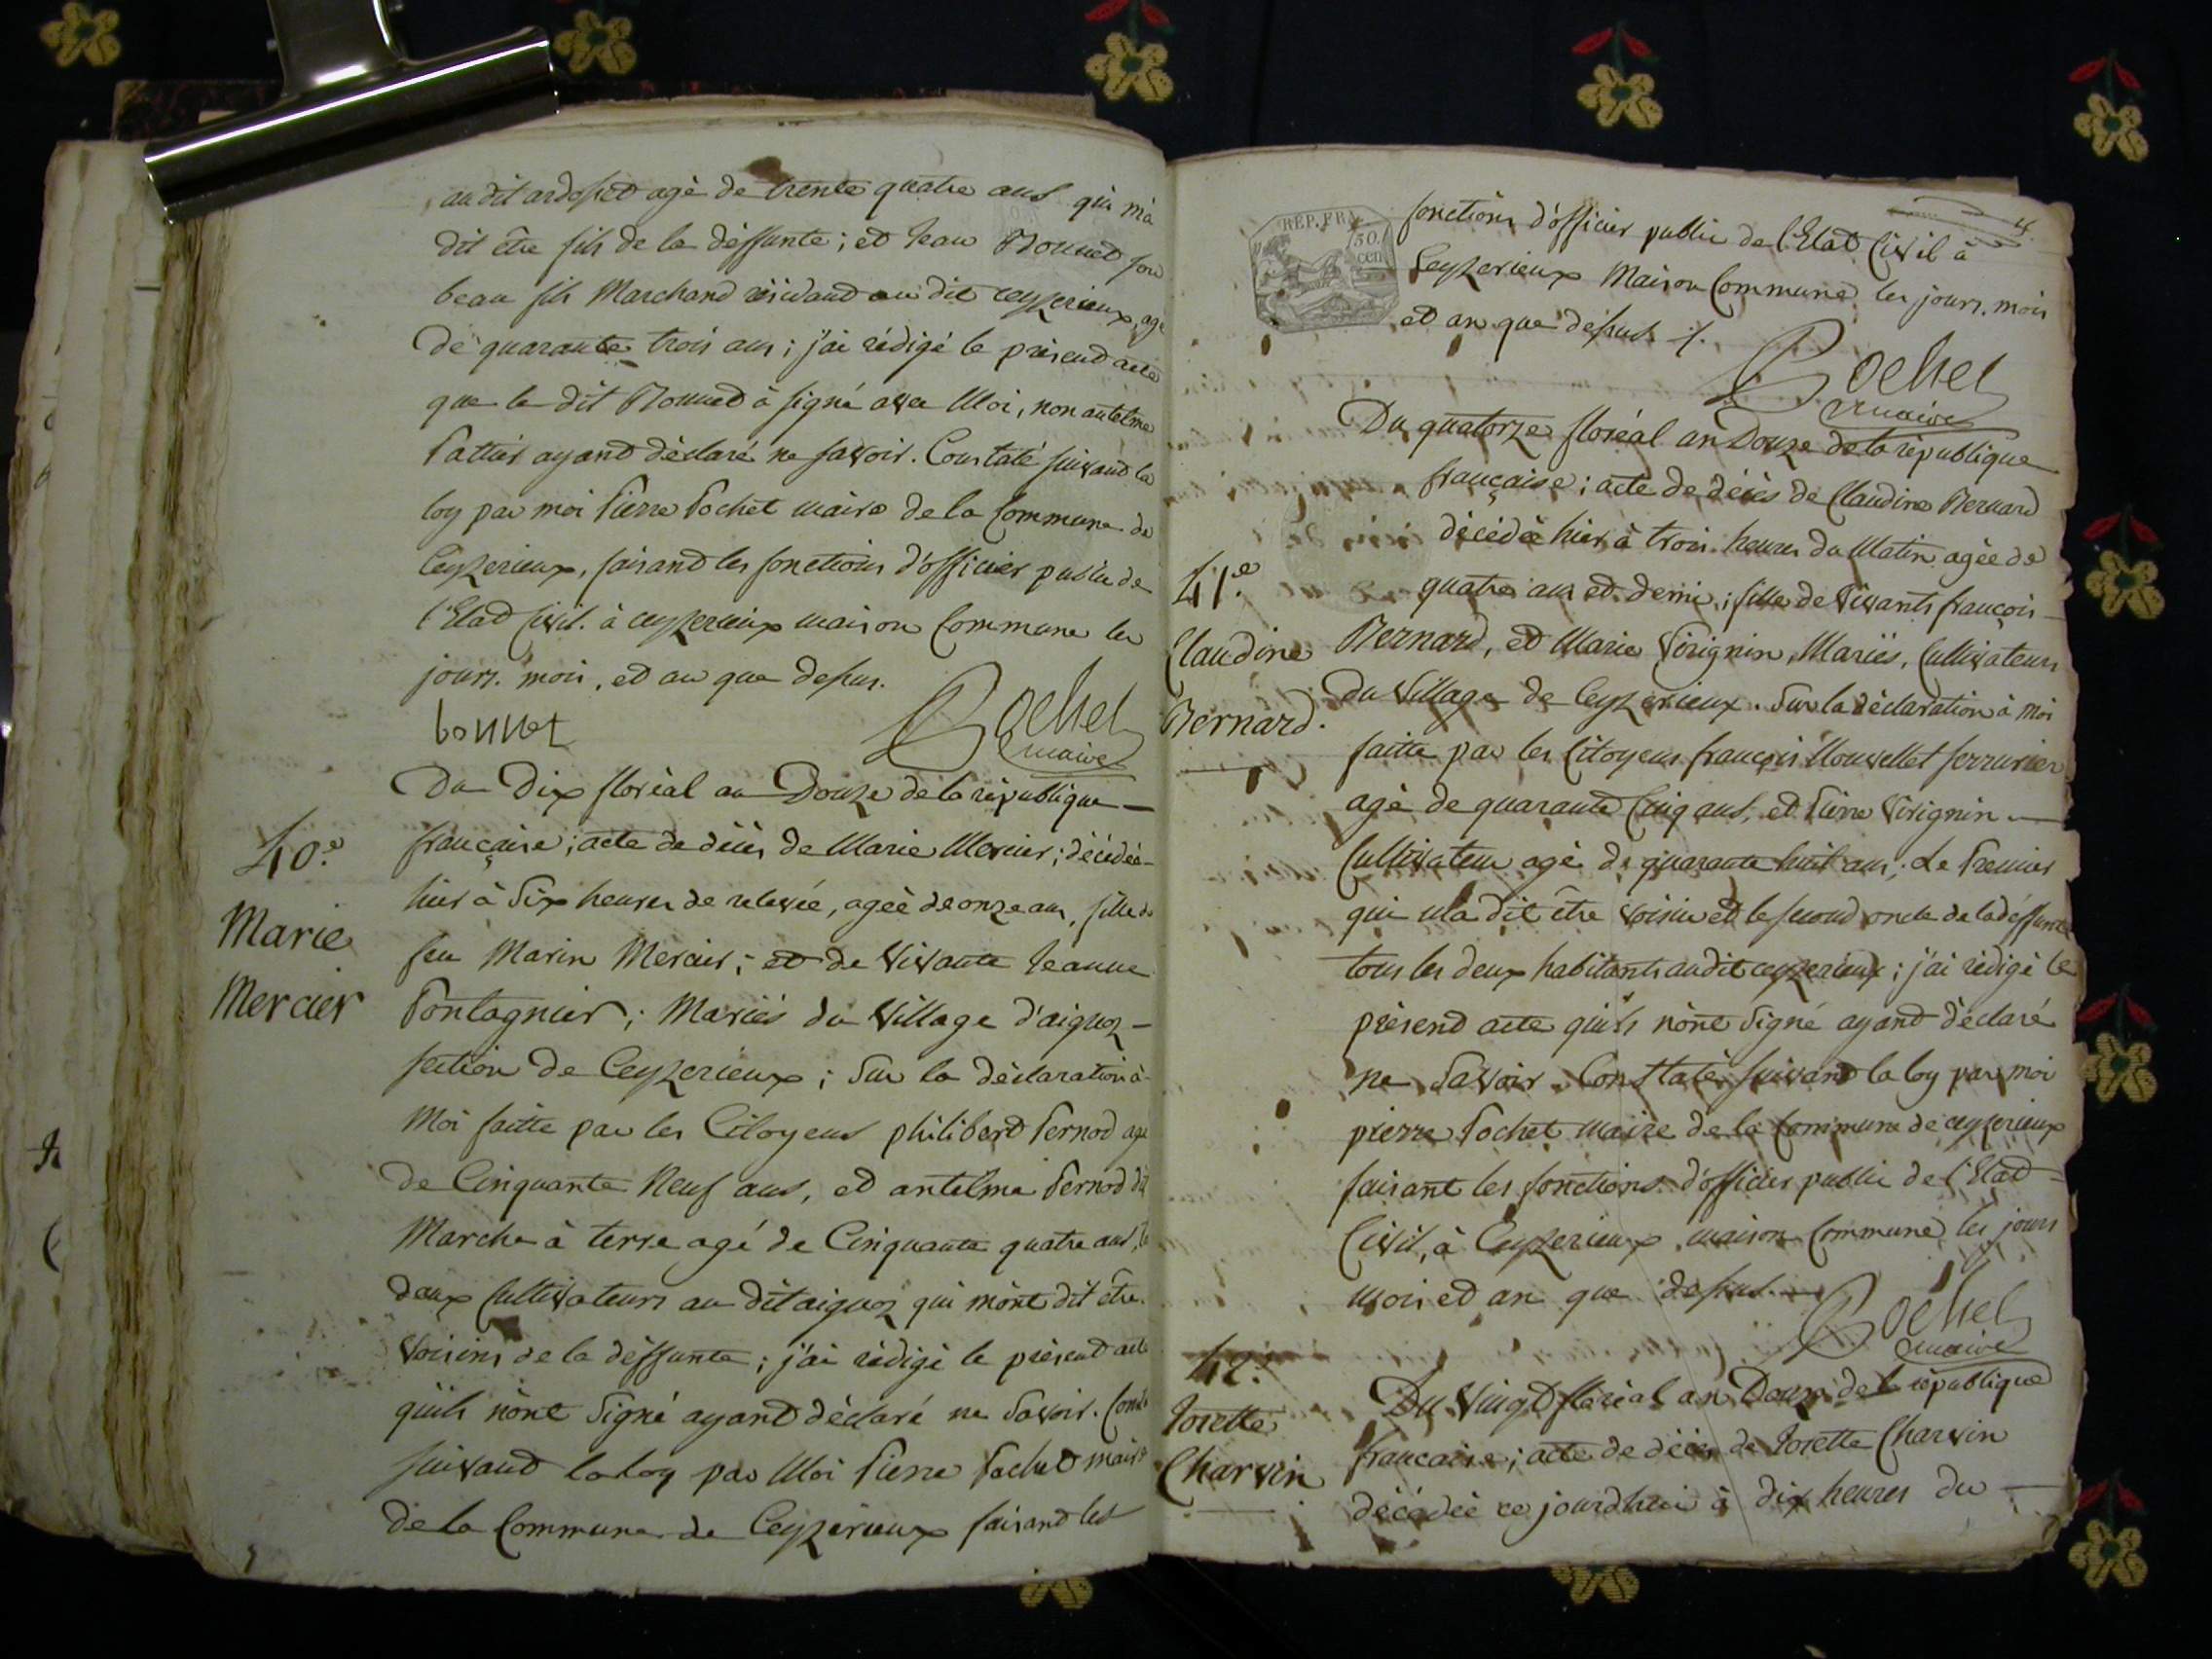 au dit ardosset agé de trente quatre ans qui m'a
dit être fils de la déffunte; et Jean Bonnet son
beau fils Marchand résidand au dit ceyzerieux agé
de quarante trois ans; j'ai rédigé le présend acte
que le dit Bonned à signé avec Moi, non antelme
ayand déclaré ne savoir. Constaté suivand la
loy par moi Pierre Pochet maire de la Commune de
Ceyzerieux, faisand les fonctions d'officier public de
l'Etad Civil. à ceyzerieux maison Commune les
jours. mois, et an que dessus.
bonnet
Pochet
maire
Du Dix floréal an Douze de la république
40.e
française; acte de décès de Marie Mercier; décédée
hier à Six heures de relevée, agée de onze ans, fille de
Marie
feu Marin Mercier; et de Vivante Jeanne
Mercier
Pontagnier; Mariés du Village d'aignoz
section de Ceyzerieux; Sur la déclaration à
Moi faitte par les Citoyens philiberd Pernod agé
de Cinquante Neuf ans, et antelme Pernod dit
Marche à terre agé de Cinquante quatre ans,
deux Cultivateurs au dit aignoz qui m'ont dit être
Voisins de la déffunte; j'ai rédigé le présend acte
qu'ils n'ont Signé ayand déclaré ne Savoir. Const
suivand la loy par Moi Pierre Pochet maire
de la Commune de Ceyzerieux faisand les
REP. FRA
50.
cen
fonctions d'officier public de l'Etad Civil à
Ceyzerieux Maison Commune les jours, mois
et an que dessus ./.
Pochet
maire
Du quatorze floréal an Douze de la république
française; acte de décès de Claudine Bernard
décédée hier à trois heures du Matin agée de
41.e
quatre ans et demi; fille de Vivants françois
Claudine
Bernard, et Marie Virignin, Mariés, Cultivateurs
Bernard.
du Village de Ceyzerieux. Sur la déclaration à Moi
faitte par les Citoyens françois Nouvellet serrurier
agé de quarante Cinq ans, et Pierre Virignin
Cultivateur agé de quarante huit ans; Le Premier
qui m'a dit être voisin et le second oncle de la déffunte
tous les deux habitants audit ceyzerieux; j'ai rédigé le
présend acte qu'ils n'ont Signé ayand déclaré
ne Savoir. Constaté suivand la loy par moi
pierre Pochet maire de la Commune de ceyzerieux
faisant les fonctions d'officier public de l'Etad
Civil, à Ceyzerieux maison Commune les jours
mois et an que dessus.
Pochet
maire
42.e
Du Vingt floréal an Douze de la république
Josette
française; acte de décès de Josette Charvin
Charvin
décédée ce jourdhui à dix heures du